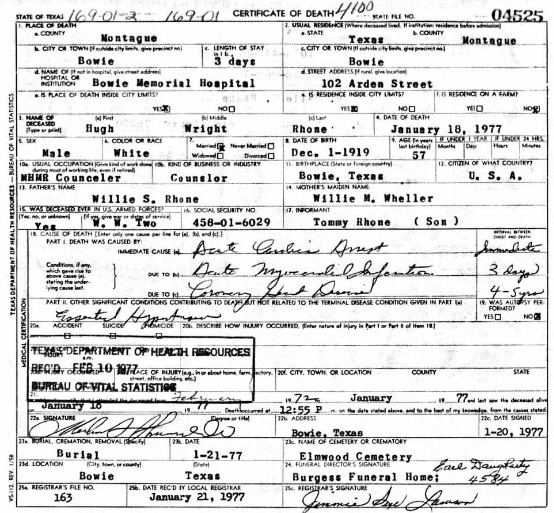 STATE OF TEXAS 169-01-2 169-01 CERTIFICATE OF DEATH 4100 STATE FILE NO. 04525
1. PLACE OF DEATH 2. USUAL RESIDENCE (Where deceased lived. If institution: residence before admission)
a. COUNTY Montague a. STATE Texas b. COUNTY Montague
b. CITY OR TOWN (If outside city limits, give precinct no.) Bowie c. LENGTH OF STAY in 1 b. 3 days c. CITY OR TOWN (If outside city limits, give precinct no.) Bowie
d. NAME OF (If not in hospital, give street address) HOSPITAL OR INSTITUTION Bowie Memorial Hospital d. STREET ADDRESS (If rural, give location) 102 Arden Street
e. IS PLACE OF DEATH INSIDE CITY LIMITS? YES NO e. IS RESIDENCE INSIDE CITY LIMITS? YES NO f. IS RESIDENCE ON A FARM? YES NO
3. NAME OF DECEASED (Type or print) (a) First Hugh (b) Middle Wright (c) Last Rhone 4. DATE OF DEATH January 18, 1977
5. SEX Male 6. COLOR OR RACE White 7. Married Never Married Widowed Divorced 8. DATE OF BIRTH Dec. 1-1919 9. AGE (In years last birthday) 57 IF UNDER 1 YEAR Months Days IF UNDER 24 HRS. Hours Min.
10a. USUAL OCCUPATION (Give kind of work done during most of working life, even if retired) MHMR Counceler 10b. KIND OF BUSINESS OR INDUSTRY Counslor 11. BIRTHPLACE (State or foreign country) Bowie, Texas 12. CITIZEN OF WHAT COUNTRY? U. S. A.
13. FATHER'S NAME Willie S. Rhone 14. MOTHER'S MAIDEN NAME Willie M. Wheller
15. WAS DECEASED EVER IN U.S. ARMED FORCES? (Yes, no, or unknown) Yes (If yes, give war or dates of service) W. W. Two 16. SOCIAL SECURITY NO. 458-01-6029 17. INFORMANT Tommy Rhone ( Son )
18. CAUSE OF DEATH (Enter only one cause per line for (a), (b), and (c).) INTERVAL BETWEEN ONSET AND DEATH
PART I. DEATH WAS CAUSED BY:
IMMEDIATE CAUSE (a) Acute Cardiac Arrest Immediate
Conditions, if any, which gave rise to above cause (a), stating the underlying cause last.
DUE TO (b) Acute Myocardial Infarction 3 days
DUE TO (c) Coronary Heart Disease 4-5yrs
PART II. OTHER SIGNIFICANT CONDITIONS CONTRIBUTING TO DEATH BUT NOT RELATED TO THE TERMINAL DISEASE CONDITION GIVEN IN PART I(a) 19. WAS AUTOPSY PERFORMED?
Essential Hypertension YES NO
20a. ACCIDENT SUICIDE HOMICIDE 20b. DESCRIBE HOW INJURY OCCURRED. (Enter nature of injury in Part I or Part II of item 18)
TEXAS DEPARTMENT OF HEALTH RESOURCES
REC'D FEB 10 1977
BUREAU OF VITAL STATISTICS
PLACE OF INJURY (e.g., in or about home, farm, factory, street, office building, etc.) 20f. CITY, TOWN, OR LOCATION COUNTY STATE
21. February 1972 January 1977 and last saw the deceased alive
January 18 77 Death occurred at 12:55 P m. on the date stated above, and to the best of my knowledge, from the causes stated.
22a. SIGNATURE (Degree or title) 22b. ADDRESS Bowie, Texas 22c. DATE SIGNED 1-20, 1977
23a. BURIAL, CREMATION, REMOVAL (Specify) Burial 23b. DATE 1-21-77 23c. NAME OF CEMETERY OR CREMATORY Elmwood Cemetery
23d. LOCATION (City, town, or county) Bowie (State) Texas 24. FUNERAL DIRECTOR'S SIGNATURE Burgess Funeral Home; Earl Daugherty 4584
25a. REGISTRAR'S FILE NO. 163 25b. DATE REC'D BY LOCAL REGISTRAR January 21, 1977 25c. REGISTRAR'S SIGNATURE Jimmie Sue Lawson
TEXAS DEPARTMENT OF HEALTH RESOURCES — BUREAU OF VITAL STATISTICS
MEDICAL CERTIFICATION
VS-112 REV. 1/58